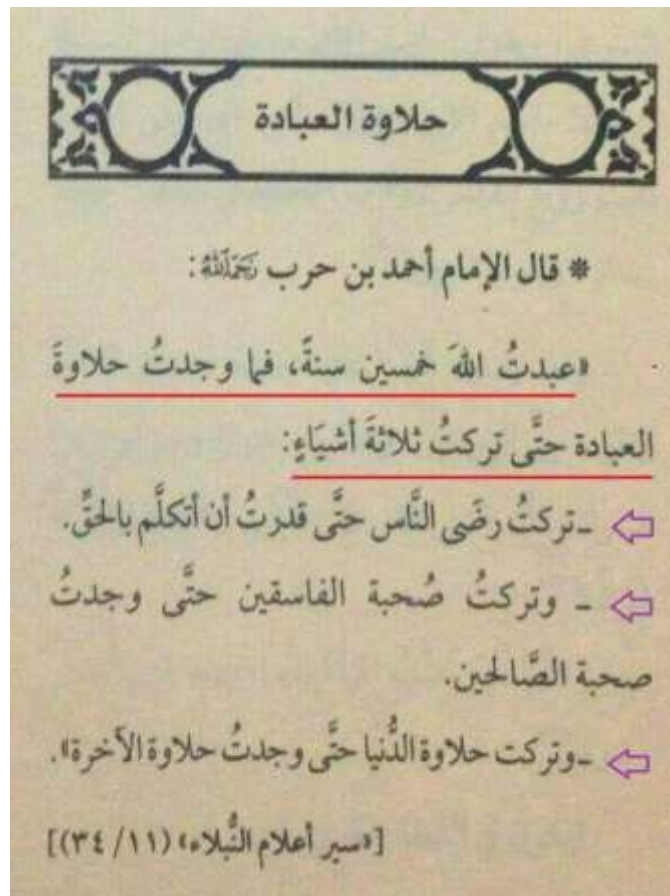 حلاوة العبادة
* قال الإمام أحمد بن حرب رَحِمَهُ اللَّهُ:
«عبدتُ اللهَ خمسين سنةً، فما وجدتُ حلاوةَ
العبادة حتَّى تركتُ ثلاثةَ أشيَاءٍ:
ـ تركتُ رضَى النَّاس حتَّى قدرتُ أن أتكلَّم بالحقِّ.
ـ وتركتُ صُحبة الفاسقين حتَّى وجدتُ
صحبة الصَّالحين.
ـ وتركت حلاوة الدُّنيا حتَّى وجدتُ حلاوة الآخرة».
[«سير أعلام النُّبلاء» (١١/ ٣٤)]